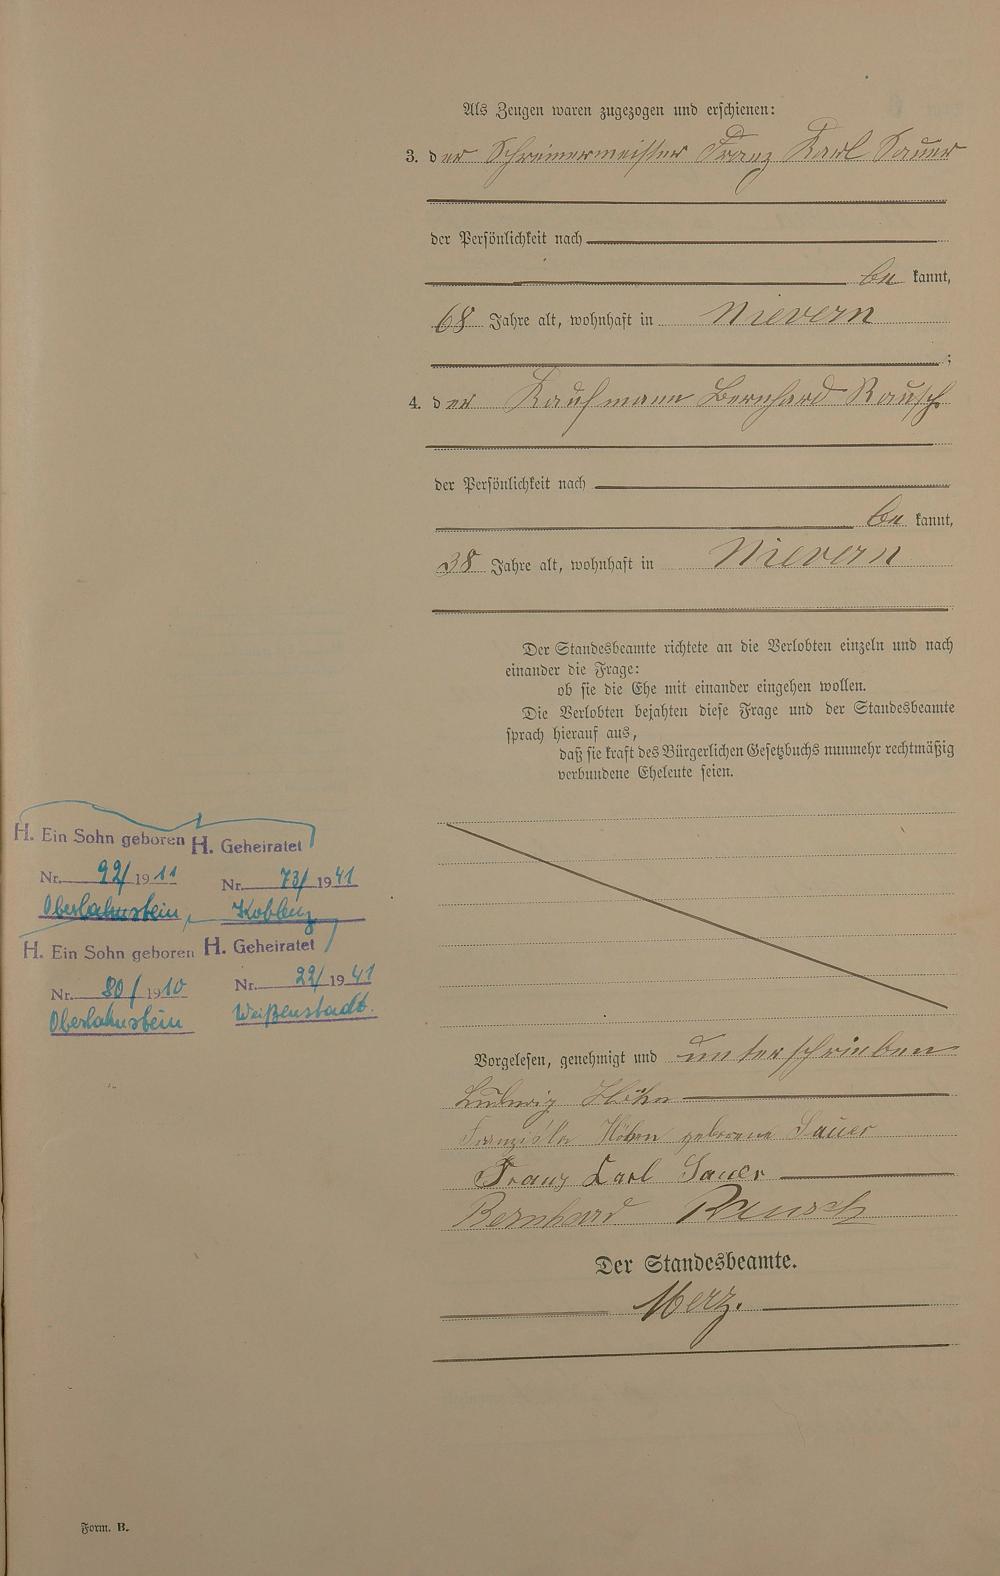 Als Zeugen waren zugezogen und erschienen:
3. der Schreinermeister Franz Karl Sauer
der Persönlichkeit nach
be kannt,
68 Jahre alt, wohnhaft in Nievern
;
4. der Kaufmann Bernhard Rausch
der Persönlichkeit nach
be kannt,
38 Jahre alt, wohnhaft in Nievern
Der Standesbeamte richtete an die Verlobten einzeln und nach
einander die Frage:
ob sie die Ehe mit einander eingehen wollen.
Die Verlobten bejahten diese Frage und der Standesbeamte
sprach hierauf aus,
daß sie kraft des Bürgerlichen Gesetzbuchs nunmehr rechtmäßig
verbundene Eheleute seien.
H. Ein Sohn geboren
Nr. 92/1911
Oberlahnstein
H. Geheiratet
Nr. 73/1941
Koblenz
H. Ein Sohn geboren
Nr. 80/1910
Oberlahnstein
H. Geheiratet
Nr. 22/1941
Weißenstadt.
Vorgelesen, genehmigt und unterschrieben
Ludwig Höhn
Franziska Höhn geborene Sauer
Franz Karl Sauer
Bernhard Rausch
Der Standesbeamte.
Merz.
Form. B.